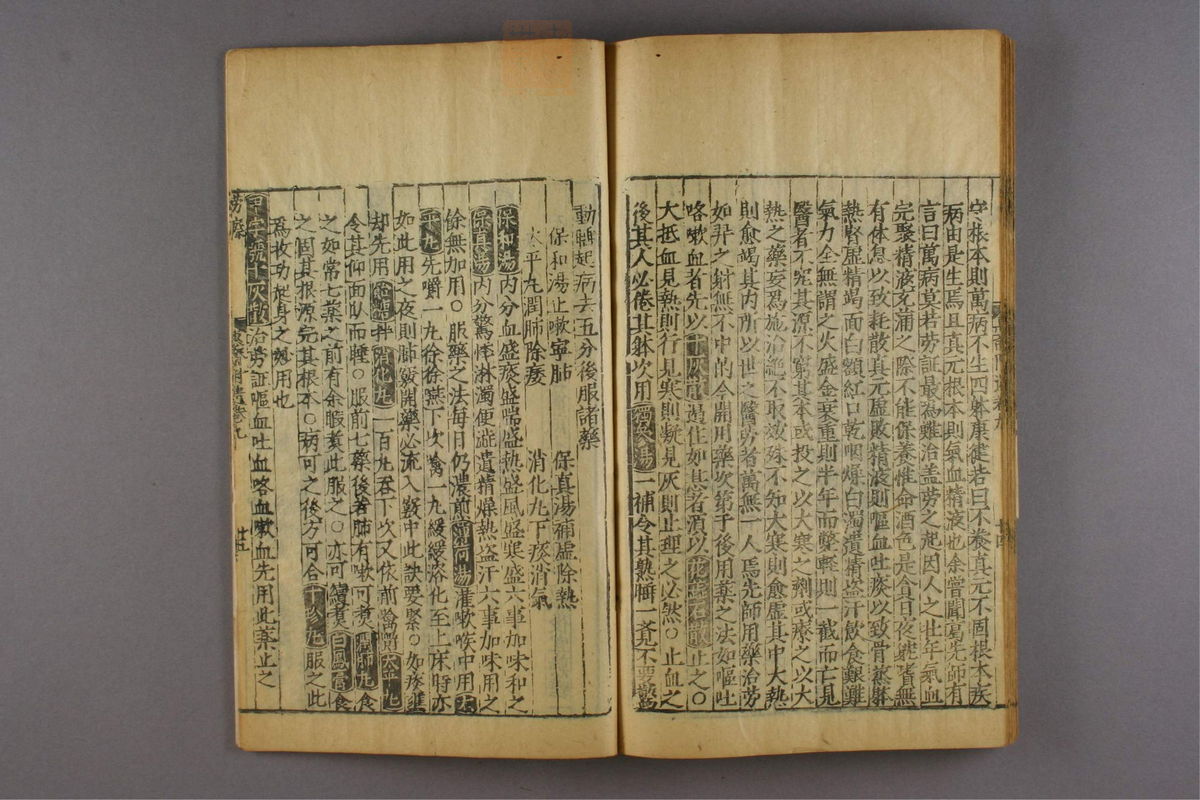 守根本則萬病不生四躰康健若曰不養真元不固根本疾
病由是生焉且真元根本則氣血精液也余嘗聞葛先師有
言曰萬病莫若勞証最為難治盖勞之起因人之壮年氣血
完聚精液充滿之際不能保養惟命酒色是貪日夜躭嗜無
有休息以致耗散真元虛敗精液則嘔血吐痰以致骨蒸躰
熱腎虛精竭面白顴紅口乾咽燥白濁遺精盗汗飲食艱難
氣力全無謂之火盛金衰重則半年而斃輕則一載而亡見
醫者不究其源不窮其本或投之以大寒之劑或療之以大
熱之藥妄為施治絶不取效殊不知大寒則愈虛其中大熱
則愈竭其内所以世之醫勞者萬無一人焉先師用藥治勞
如羿之射無不中的今開用藥次第于後用藥之法如嘔吐
咯嗽血者先以十灰散遏住如甚者須以花蕊石散止之○
大抵血見熱則行見寒則凝見灰則止理之必然○止血之
後其人必倦其躰次用獨參湯一補令其熟睡一覺不要驚
動睡起病去五分後服諸藥
保和湯止嗽寧肺 保真湯補虛除熱
太平丸潤肺除痿 消化丸下痰消氣
保和湯内分血盛痰盛喘盛熱盛風盛寒盛六事加味和之
保真湯内分驚悸淋濁便澁遺精燥熱盗汗六事加味用之
餘無加用○服藥之法每日仍濃煎薄荷湯灌嗽喉中用太
平丸先嚼一丸徐徐嚥下次噙一丸緩緩溶化至上床時亦
如此用之夜則肺竅開藥必流入竅中此訣要緊○如痰壅
却先用飴糖拌消化丸一百丸吞下次又依前噙嚼太平丸
令其仰面卧而睡○服前七藥後若肺有嗽可煑潤肺丸食
之如常七藥之前有余暇煑此服之○亦可續煑白鳳膏食
之固其根源完其根本○病可之後方可合十珍丸服之此
為收功起身之妙用也
甲字號十灰散治勞証嘔血吐血咯血嗽血先用此藥止之
勞瘵